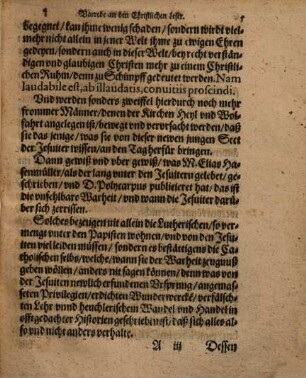 Vorrede an den Christlichen leser.
begegnet / kan ihme wenig schaden / sondern wirdt viel-
mehr nicht allein in jener Welt ihme zu ewigen Ehren
gedeyen / sondern auch in dieser Welt / bey recht verstän-
digen vnd glaubigen Christen mehr zu einem Christli-
chen Ruhm / denn zu Schimpff gedeutet werden. Nam
laudabile est, ab illaudatis, conuitiis proscindi.
Vnd werden sonders zweiffel hierdurch noch mehr
frommer Männer / denen der Kirchen Heyl vnd Wol-
fahrt angelegen ist / bewegt vnd vervrsacht werden / daß
sie das jenige / was sie von dieser newen jungen Sect
der Jesuiter wissen / an den Tag herfür bringen.
Dann gewiß vnd vber gewiß / was M. Elias Ha-
senmüller / als der lang vnter den Jesuitern gelebet / ge-
schrieben / vnd D. Polycarpus publicieret hat / das ist
die vnfehlbare Warheit / vnd wann die Jesuiter darü-
ber sich zerrissen.
Solches bezeugen nit allein die Lutherischen / so ver-
mengt vnter den Papisten wohnen / vnd von den Jesui-
ten viel leiden müssen / sondern es bestättigens die Ca-
tholischen selbs / welche / wann sie der Warheit zeugnuß
geben wöllen / anders nit sagen können / denn was von
der Jesuiten newlich erfundenen Vrsprung / angemas-
seten Privilegien / erdichten Wunderwercke / verfälsch-
ten Lehr vnnd heuchlerischem Wandel vnd Handel in
offtgedachter Historien geschrieben ist / daß sich alles al-
so vnd nicht anders verhalte.
A iij Dessen